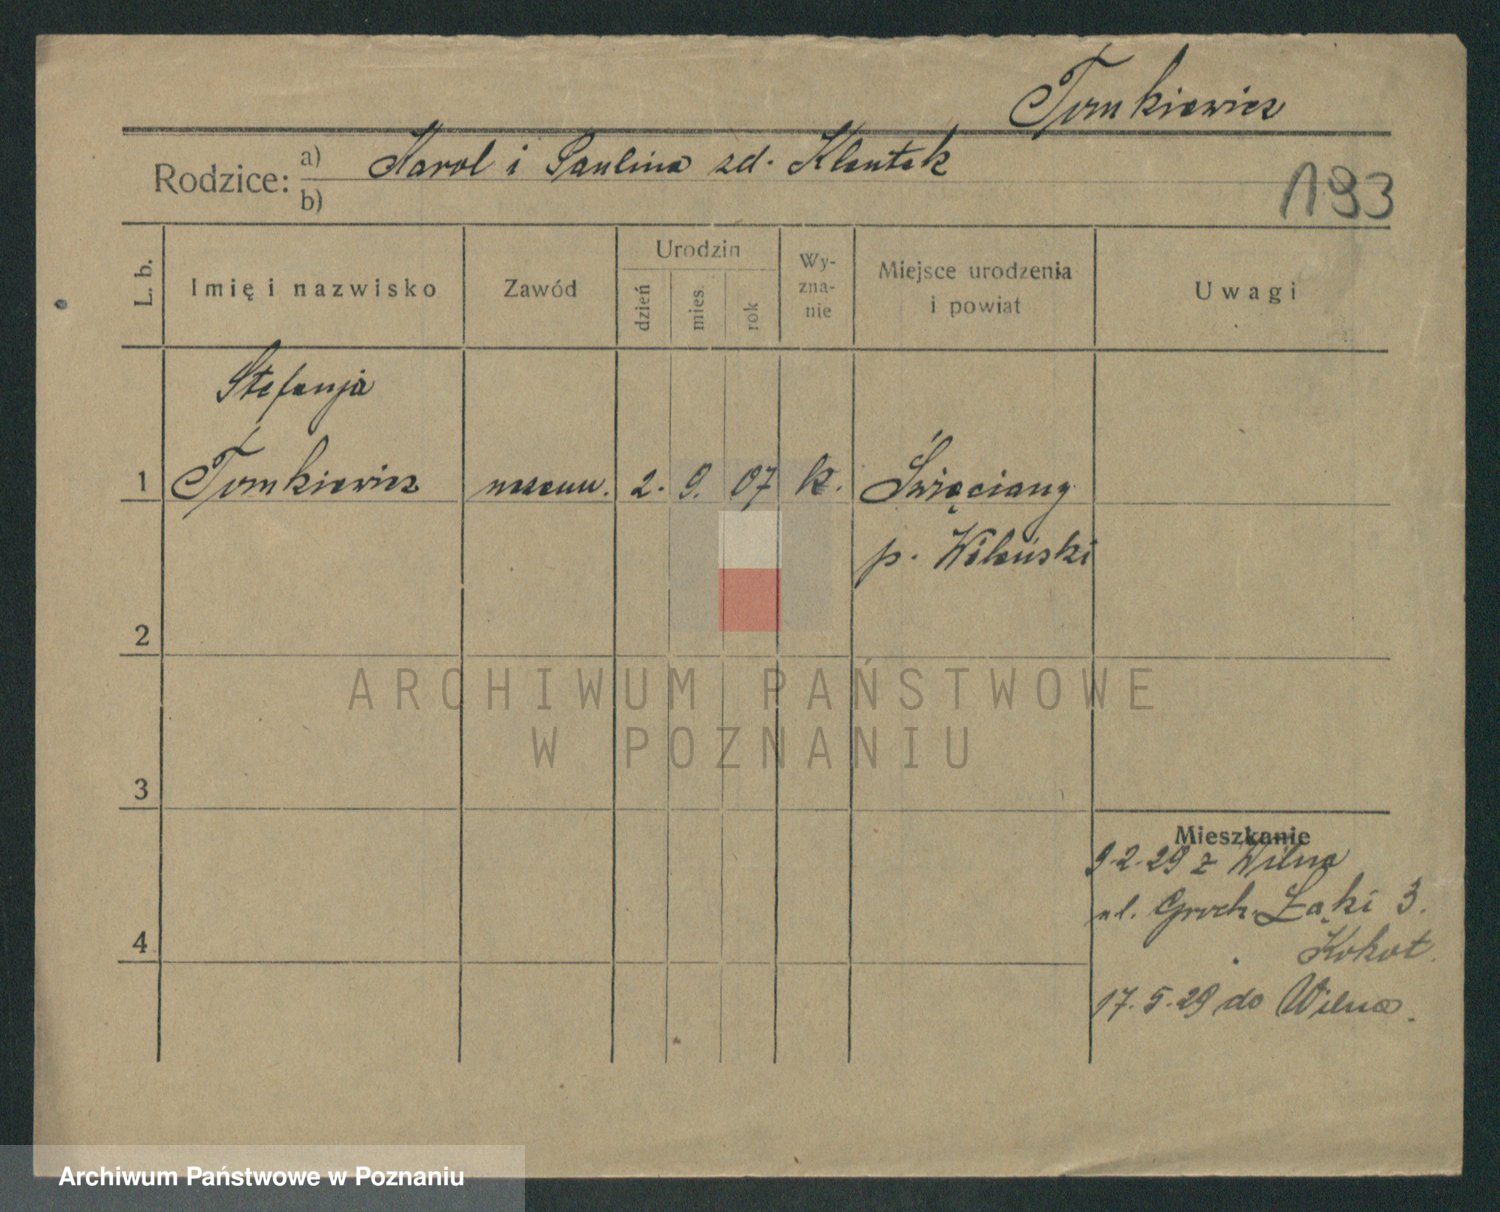 Tomkiewicz
Rodzice: a) Karol i Paulina zd. Klentak
b)
193
L. b.
Imię i nazwisko
Zawód
Urodzin
dzień
mies.
rok
Wy-
zna-
nie
Miejsce urodzenia
i powiat
Uwagi
Stefanja
1 Tomkiewicz 2. 9. 07 k. Święciany
p. Wileński
2
3
4
Mieszkanie
9.2.29 z Wilna
ul. Groch. Łąki 3.
Kokot.
17.5.29 do Wilna.
ARCHIWUM PAŃSTWOWE
W POZNANIU
Archiwum Państwowe w Poznaniu